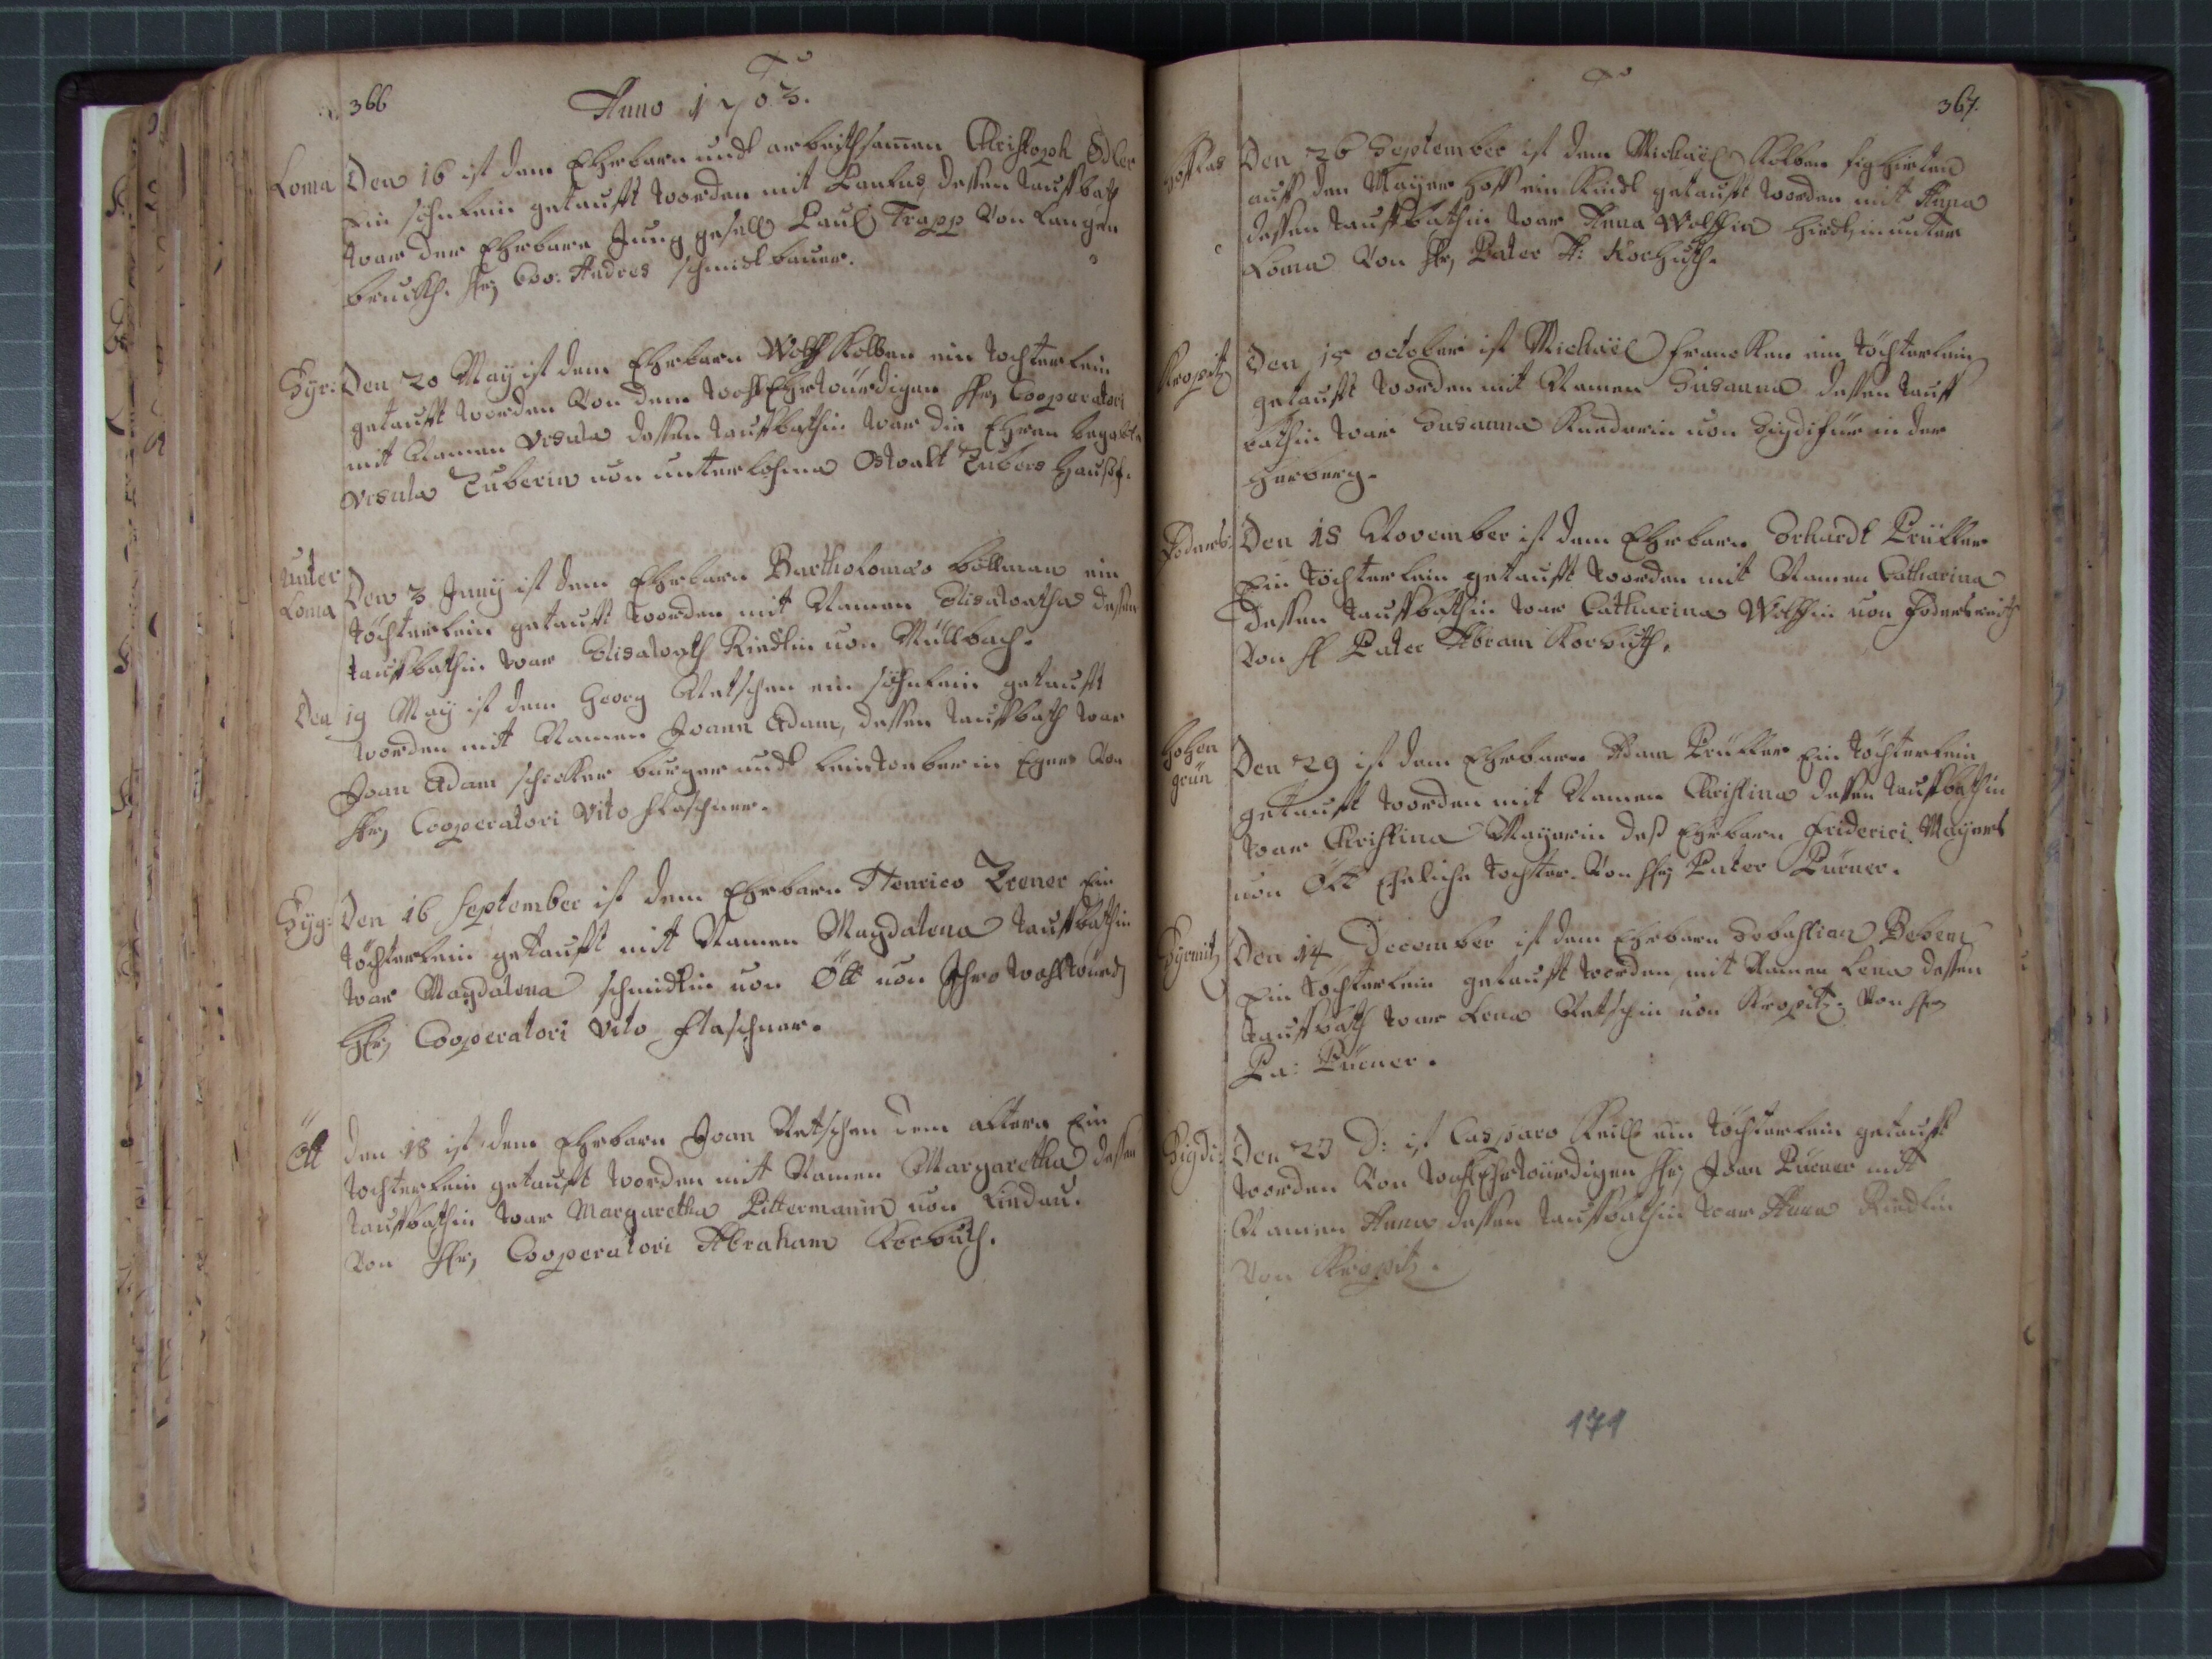 366
Anno 1703.
Loma Den 16 ist dem Ehrbarn undt arbeithsamen Christoph Edler
Ein söhnlein getaufft worden mit Paulus, dessen tauffbath
war der Ehrbare Jung gesell Paul Trapp Von Langen
bruckh. Hr. Coo: Andres schmidtbauer.
Syr: Den 20 May ist dem Ehrbarn Wolff Kolben ein tochterlein
getaufft worden Von dem wohlEhrwürdigen Hr. Cooperatori
mit Namen Vrsula dessen tauffbathin war die Ehren begabte
Vrsula Zuberin von unterlohma Ostwalt Zubers haußf.
Unter
Loma
Den 3 Juny ist dem Ehrbarn Bartholomæo böllman ein
töchterlein getaufft worden mit Namen Elisabetha dessen
tauffbathin war Elisabeth Riedlin von Müllbach.
Den 19 May ist dem Georg Netschen ein söhnlein getaufft
worden mit Namen Joann Adam, dessen tauffbath war
Joan Adam schecker burger undt leinweber in Eger Von
Hr. Cooperatori Vito flaschner.
Syg: Den 16 September ist dem Ehrbarn Henrico Zrener Ein
töchterlein getaufft mit Namen Magdalena tauffbathin
war Magdalena schmidtin von Ött von Ihro wohlEhrwürd.
Hr. Cooperatori Vito flaschner.
Ött den 18 ist dem Ehrbarn Joan Netschen dem altern Ein
tochterlein getaufft worden mit Namen Margaretha dessen
tauffbathin war Margaretha Pittermanin von Lindau.
Von Hr. Cooperatori Abraham Korbuth.
367.
Hoffkas Den 26 September ist dem Michäel Kolben
auff den Mayer hoff ein Kindt getaufft worden mit Anna
dessen tauffbathin war Anna Wolffin in unter
Loma Von Hr. Pater A: Korbuth.
Kropitz Den 15 october ist Michäel francken ein töchterlein
getaufft worden mit Namen Susanna dessen tauff
bathin war Susanna von in der
Herberg.
Foders: Den 18 November ist dem Ehrbarn Erhardt Prücker
Ein töchterlein getaufft worden mit Namen Catharina
dessen tauffbathin war Catharina Wolffin von fodersreith
Von H Pater Abram Korbuth.
Hohen
grün
Den 29 ist dem Ehrbarn Adam Prücker Ein töchterlein
getaufft worden mit Namen Christina dessen tauffbathin
war Christina Mayerin deß Ehrbarn friderici Mayers
von Ött Eheliche tochter. Von Hr. Pater Pürner.
Syrmitz Den 14 December ist dem Ehrbarn Sebastian
Ein töchterlein getaufft worden mit Namen Lena dessen
tauffbath war Lena Netschin von Kropitz. Von Hr.
Pa: Pürner.
Sigdi: Den 23 D: ist Casparo Keill ein töchterlein getaufft
worden Von wohlEhrwürdigen Hr. Joan Pürner mit
Namen Anna dessen tauffbathin war Anna Riedlin
Von Kropitz.
171